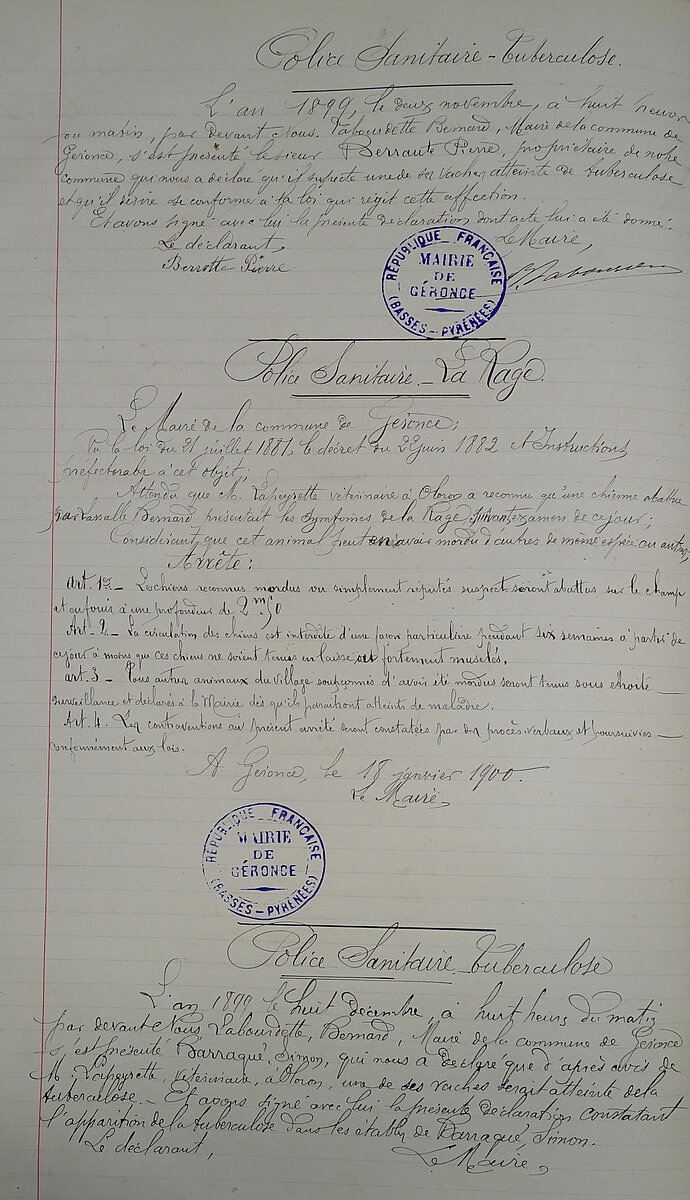 Police Sanitaire - Tuberculose.
L'an 1899, le deux novembre, à huit heures
du matin, par devant Nous. Labourdette Bernard, Maire de la commune de
Geronce, s'est présenté le sieur Berraute Pierre, propriétaire de notre
commune qui nous a déclaré qu'il suspecte une de ses vaches atteinte de tuberculose
et qu'il désire se conformer à la loi qui régit cette affection.
Et avons signé avec lui la présente déclaration dont acte lui a été donné.
Le déclarant, Le Maire,
Berrotte Pierre
RÉPUBLIQUE FRANÇAISE
MAIRIE
DE
GÉRONCE
(BASSES-PYRÉNÉES)
Police Sanitaire - La Rage.
Le Maire de la commune de Geronce;
Vu la loi du 21 juillet 1881, le décret du 22 juin 1882 et Instructions
préfectorales à cet objet;
Attendu que M. Lapeyrette vétérinaire à Oloron a reconnu qu'une chienne abattue
par Lassalle Bernard présentait les symfomes de la Rage, suivant examen de ce jour;
Considérant que cet animal peut en avoir mordu d'autres de même espèce ou autres,
Arrête:
Art. 1er - Les chiens reconnus mordus ou simplement réputés suspects seront abattus sur le champ
et enfouis à une profondeur de 2m50
Art - 2 - La circulation des chiens est interdite d'une façon particulière pendant six semaines à partir de
ce jour à moins que ces chiens ne soient tenus en laisse ou fortement muselés.
art. 3 - Tous autres animaux du village soupçonnés d'avoir été mordus seront tenus sous étroite
surveillance et déclarés à la Mairie dès qu'ils paraîtront atteints de maladie.
Art. 4. Les contraventions au présent arrêté seront constatées par des procès verbaux et poursuivies
conformément aux lois.
A Geronce, le 18 janvier 1900.
Le Maire,
RÉPUBLIQUE FRANÇAISE
MAIRIE
DE
GÉRONCE
(BASSES-PYRÉNÉES)
Police Sanitaire - Tuberculose
L'an 1899 le huit décembre, à huit heures du matin
par devant Nous Labourdette, Bernard, Maire de la commune de Geronce
s'est présenté Barraqué, Simon, qui nous a déclaré que d'après avis de
M. Lapeyrette, vétérinaire, à Oloron, une de ses vaches serait atteinte de la
tuberculose. - Et avons signé avec lui la présente déclaration constatant
l'apparition de la tuberculose dans les étables de Barraqué, Simon.
Le déclarant, Le Maire,